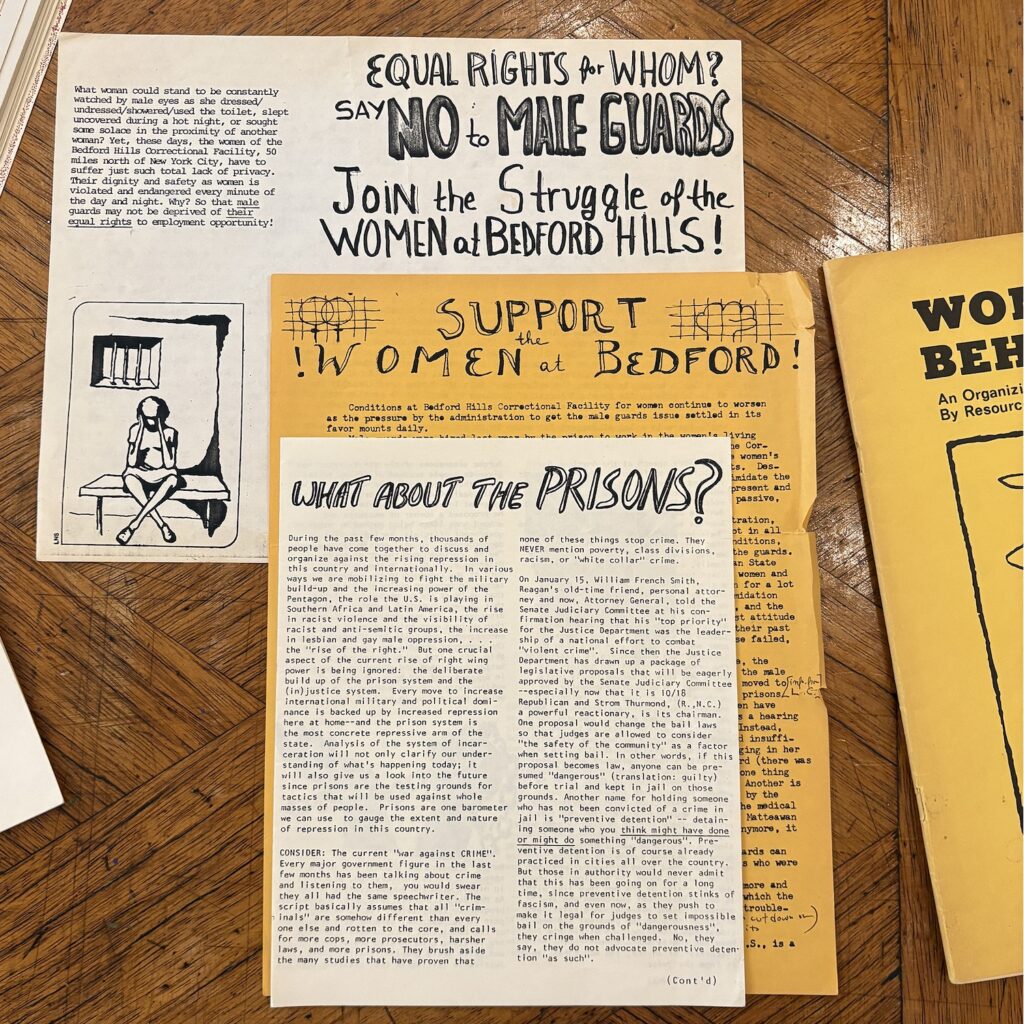 What woman could stand to be constantly
watched by male eyes as she dressed/
undressed/showered/used the toilet, slept
uncovered during a hot night, or sought
some solace in the proximity of another
woman? Yet, these days, the women of the
Bedford Hills Correctional Facility, 50
miles north of New York City, have to
suffer just such total lack of privacy.
Their dignity and safety as women is
violated and endangered every minute of
the day and night. Why? So that male
guards may not be deprived of their
equal rights to employment opportunity!
EQUAL RIGHTS for WHOM?
SAY NO to MALE GUARDS
JOIN the Struggle of the
WOMEN at BEDFORD HILLS!
LNS
SUPPORT
the
!WOMEN at BEDFORD!
Conditions at Bedford Hills Correctional Facility for women continue to worsen
as the pressure by the administration to get the male guards issue settled in its
favor mounts daily.
Male guards were hired last year by the prison to work in the women's living
he Cor-
women's
ts. Des-
imidate the
present and
passive,
tration,
ot in all
nditions,
the guards.
an State
women and
n for a lot
midation
, and the
st attitude
their past
se failed,
e, the
the male
moved to
prisons
en have
s a hearing
Instead,
d insuffi-
ging in her
rd (there was
one thing
Another is
by the
he medical
Matteawan
nymore, it
ards can
s who were
more and
which the
trouble-
cut down on)
.S., is a
WHAT ABOUT THE PRISONS?
During the past few months, thousands of
people have come together to discuss and
organize against the rising repression in
this country and internationally. In various
ways we are mobilizing to fight the military
build-up and the increasing power of the
Pentagon, the role the U.S. is playing in
Southern Africa and Latin America, the rise
in racist violence and the visibility of
racist and anti-semitic groups, the increase
in lesbian and gay male oppression, . . .
the "rise of the right." But one crucial
aspect of the current rise of right wing
power is being ignored: the deliberate
build up of the prison system and the
(in)justice system. Every move to increase
international military and political domi-
nance is backed up by increased repression
here at home--and the prison system is
the most concrete repressive arm of the
state. Analysis of the system of incar-
ceration will not only clarify our under-
standing of what's happening today; it
will also give us a look into the future
since prisons are the testing grounds for
tactics that will be used against whole
masses of people. Prisons are one barometer
we can use to gauge the extent and nature
of repression in this country.
CONSIDER: The current "war against CRIME".
Every major government figure in the last
few months has been talking about crime
and listening to them, you would swear
they all had the same speechwriter. The
script basically assumes that all "crim-
inals" are somehow different than every
one else and rotten to the core, and calls
for more cops, more prosecutors, harsher
laws, and more prisons. They brush aside
the many studies that have proven that
none of these things stop crime. They
NEVER mention poverty, class divisions,
racism, or "white collar" crime.
On January 15, William French Smith,
Reagan's old-time friend, personal attor-
ney and now, Attorney General, told the
Senate Judiciary Committee at his con-
firmation hearing that his "top priority"
for the Justice Department was the leader-
ship of a national effort to combat
"violent crime". Since then the Justice
Department has drawn up a package of
legislative proposals that will be eagerly
approved by the Senate Judiciary Committee
--especially now that it is 10/18
Republican and Strom Thurmond, (R.,N.C.)
a powerful reactionary, is its chairman.
One proposal would change the bail laws
so that judges are allowed to consider
"the safety of the community" as a factor
when setting bail. In other words, if this
proposal becomes law, anyone can be pre-
sumed "dangerous" (translation: guilty)
before trial and kept in jail on those
grounds. Another name for holding someone
who has not been convicted of a crime in
jail is "preventive detention" -- detain-
ing someone who you think might have done
or might do something "dangerous". Pre-
ventive detention is of course already
practiced in cities all over the country.
But those in authority would never admit
that this has been going on for a long
time, since preventive detention stinks of
fascism, and even now, as they push to
make it legal for judges to set impossible
bail on the grounds of "dangerousness",
they cringe when challenged. No, they
say, they do not advocate preventive deten-
tion "as such".
(Cont'd)
WO
BEH
An Organizi
By Resourc